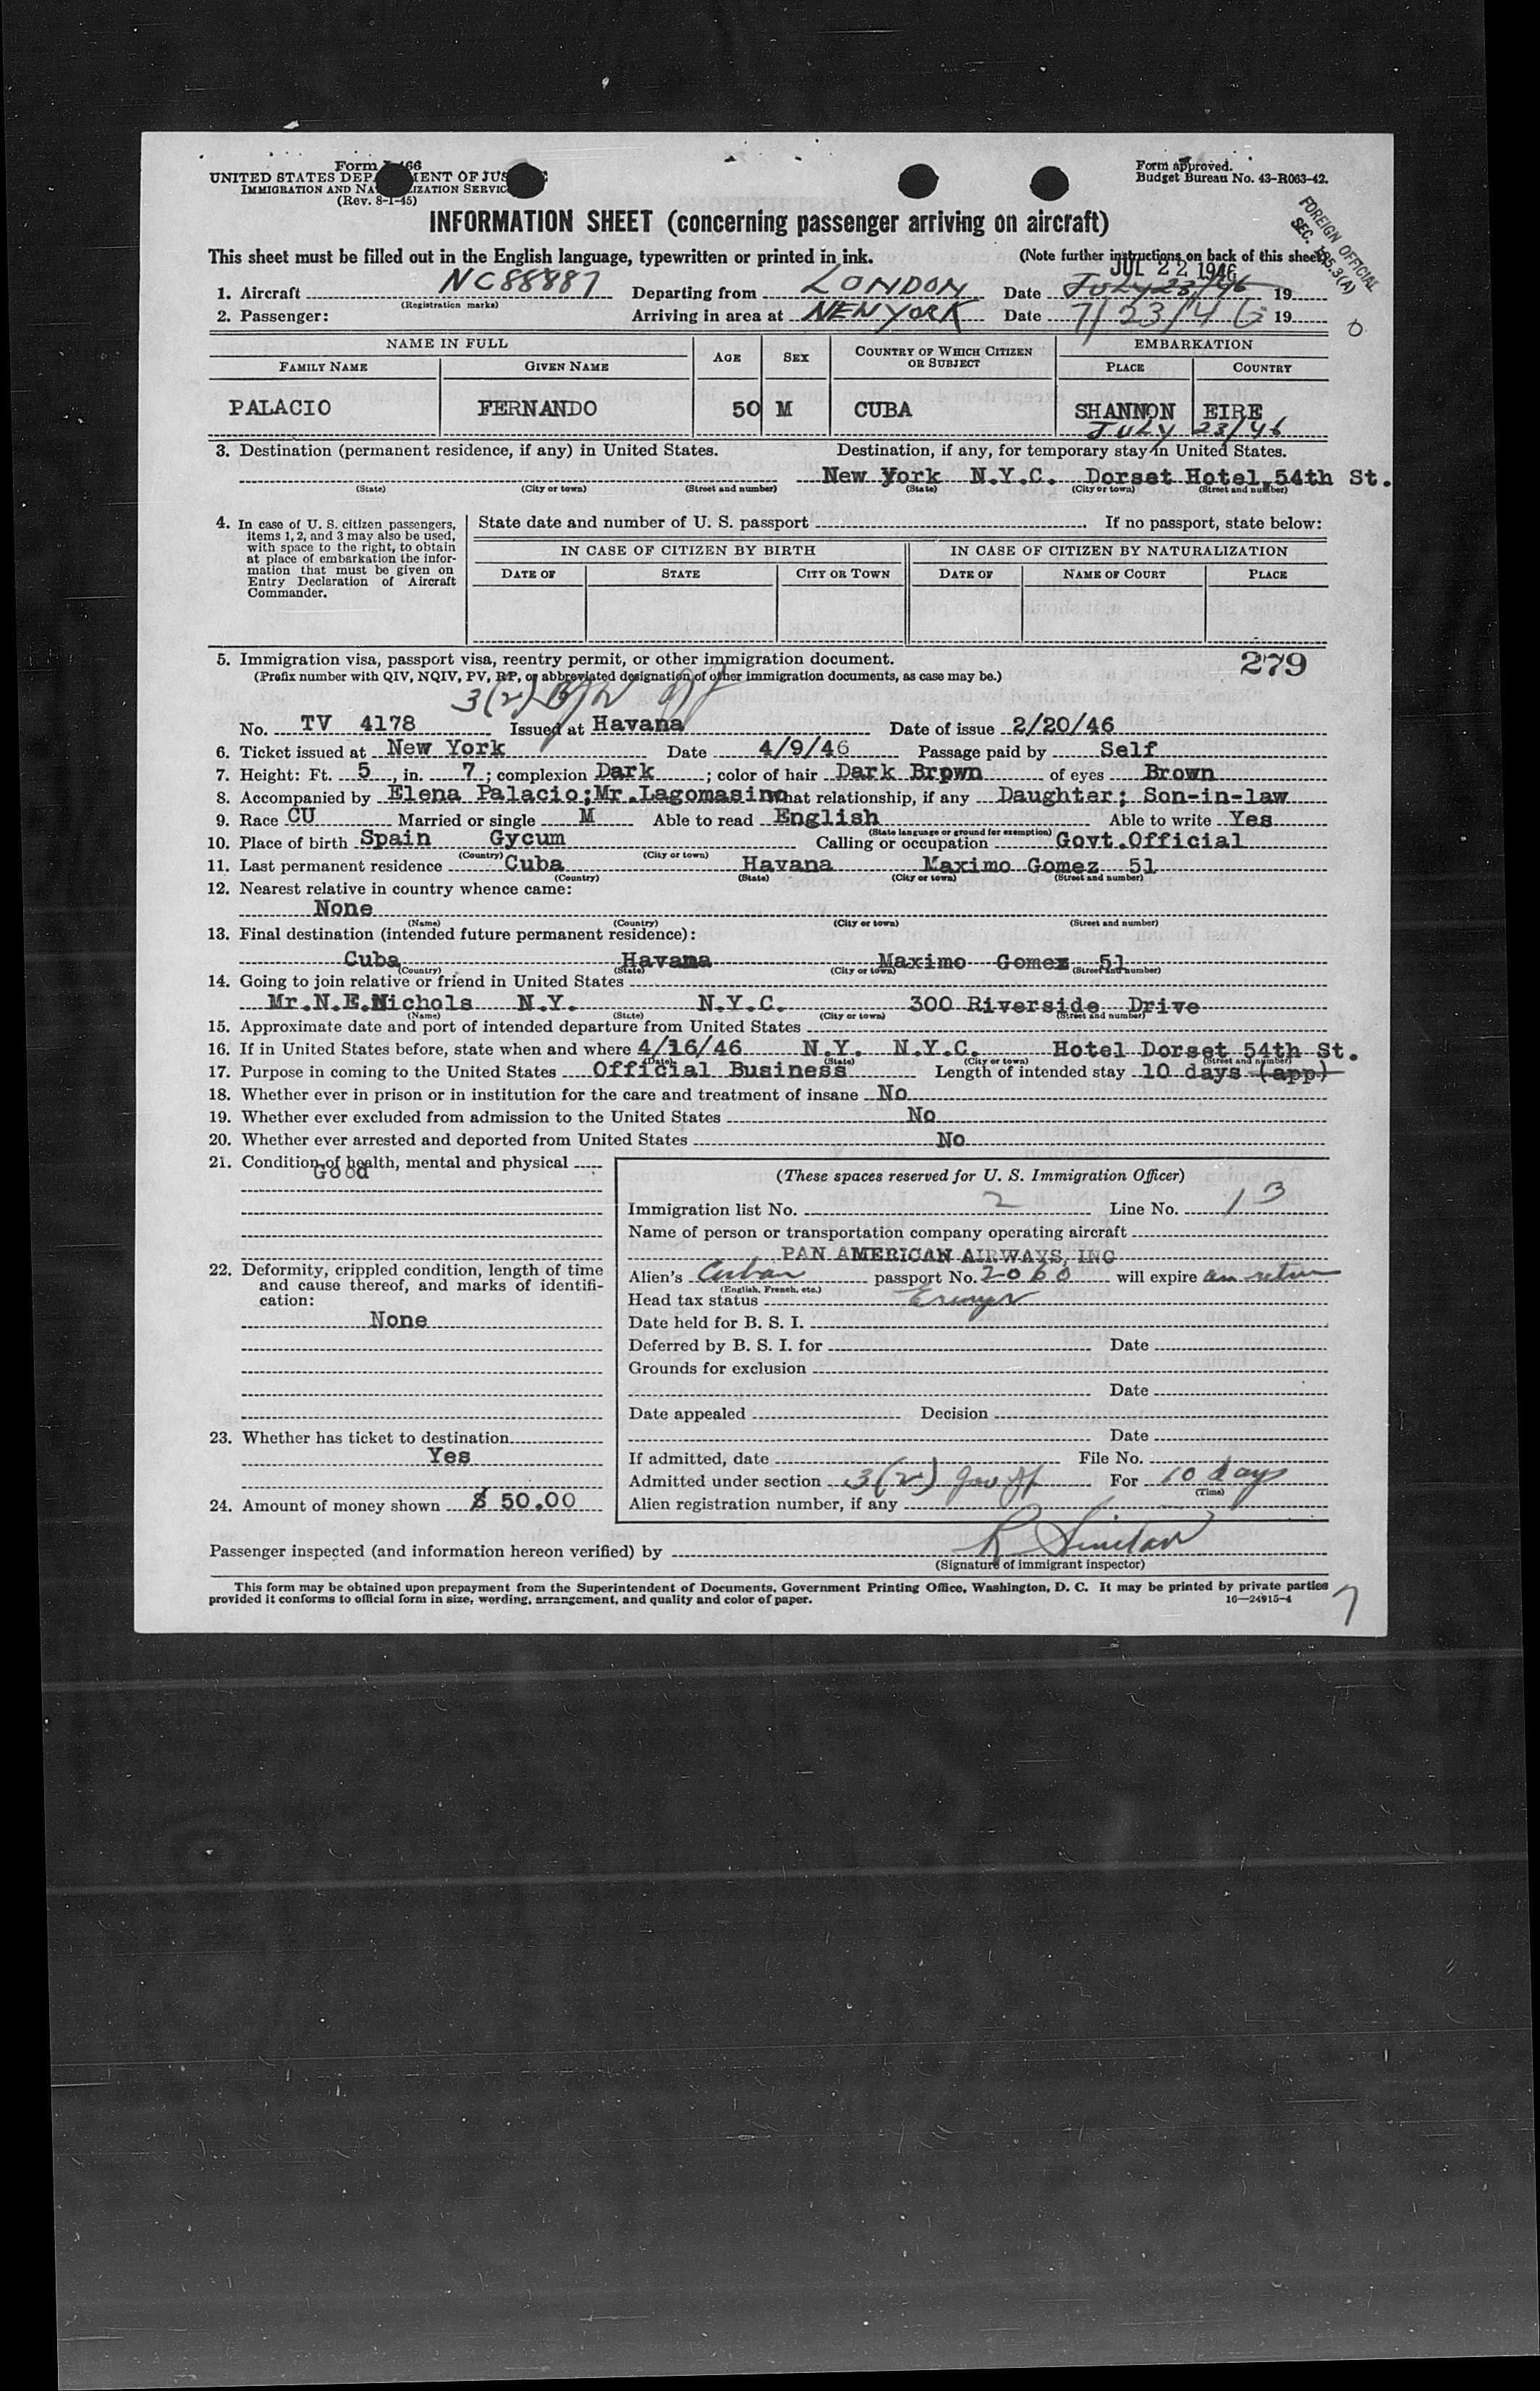 Form I-466
UNITED STATES DEPARTMENT OF JUSTICE
IMMIGRATION AND NATURALIZATION SERVICE
(Rev. 8-1-45)
Form approved.
Budget Bureau No. 43-R063-42.
FOREIGN OFFICIAL
SEC. 185.3(A)
INFORMATION SHEET (concerning passenger arriving on aircraft)
This sheet must be filled out in the English language, typewritten or printed in ink. (Note further instructions on back of this sheet)
JUL 22 1946
1. Aircraft NC88887 Departing from LONDON Date JULY 23/46 19
(Registration marks)
2. Passenger: Arriving in area at NEW YORK Date 7/23/46 19
NAME IN FULL AGE SEX COUNTRY OF WHICH CITIZEN OR SUBJECT EMBARKATION
FAMILY NAME GIVEN NAME PLACE COUNTRY
PALACIO FERNANDO 50 M CUBA SHANNON EIRE
JULY 23/46
3. Destination (permanent residence, if any) in United States. Destination, if any, for temporary stay in United States.
New York N.Y.C. Dorset Hotel,54th St.
(State) (City or town) (Street and number) (State) (City or town) (Street and number)
4. In case of U. S. citizen passengers, items 1, 2, and 3 may also be used, with space to the right, to obtain at place of embarkation the information that must be given on Entry Declaration of Aircraft Commander.
State date and number of U. S. passport If no passport, state below:
IN CASE OF CITIZEN BY BIRTH IN CASE OF CITIZEN BY NATURALIZATION
DATE OF STATE CITY OR TOWN DATE OF NAME OF COURT PLACE
5. Immigration visa, passport visa, reentry permit, or other immigration document. 279
(Prefix number with QIV, NQIV, PV, RP, or abbreviated designation of other immigration documents, as case may be.)
3(2)
No. TV 4178 Issued at Havana Date of issue 2/20/46
6. Ticket issued at New York Date 4/9/46 Passage paid by Self
7. Height: Ft. 5, in. 7; complexion Dark; color of hair Dark Brown of eyes Brown
8. Accompanied by Elena Palacio;Mr.Lagomasino What relationship, if any Daughter; Son-in-law
9. Race CU Married or single M Able to read English Able to write Yes
(State language or ground for exemption)
10. Place of birth Spain Gycum Calling or occupation Govt.Official
(Country) (City or town)
11. Last permanent residence Cuba Havana Maximo Gomez 51
(Country) (State) (City or town) (Street and number)
12. Nearest relative in country whence came:
None
(Name) (Country) (City or town) (Street and number)
13. Final destination (intended future permanent residence):
Cuba Havana Maximo Gomez 51
(Country) (State) (City or town) (Street and number)
14. Going to join relative or friend in United States
Mr.N.E.Nichols N.Y. N.Y.C. 300 Riverside Drive
(Name) (State) (City or town) (Street and number)
15. Approximate date and port of intended departure from United States
16. If in United States before, state when and where 4/16/46 N.Y. N.Y.C. Hotel Dorset 54th St.
(Date) (State) (City or town) (Street and number)
17. Purpose in coming to the United States Official Business Length of intended stay 10 days (app)
18. Whether ever in prison or in institution for the care and treatment of insane No
19. Whether ever excluded from admission to the United States No
20. Whether ever arrested and deported from United States No
21. Condition of health, mental and physical
Good
22. Deformity, crippled condition, length of time and cause thereof, and marks of identification:
None
23. Whether has ticket to destination
Yes
24. Amount of money shown $ 50.00
(These spaces reserved for U. S. Immigration Officer)
Immigration list No. 2 Line No. 13
Name of person or transportation company operating aircraft
PAN AMERICAN AIRWAYS, INC
Alien's Cuban passport No. 2060 will expire on return
(English, French, etc.)
Head tax status Exempt
Date held for B. S. I.
Deferred by B. S. I. for Date
Grounds for exclusion
Date
Date appealed Decision
Date
If admitted, date File No.
Admitted under section 3(2) Gov Of For 10 days
(Time)
Alien registration number, if any
Passenger inspected (and information hereon verified) by R Sinclair
(Signature of immigrant inspector)
This form may be obtained upon prepayment from the Superintendent of Documents, Government Printing Office, Washington, D. C. It may be printed by private parties
provided it conforms to official form in size, wording, arrangement, and quality and color of paper. 16—24915-4
7